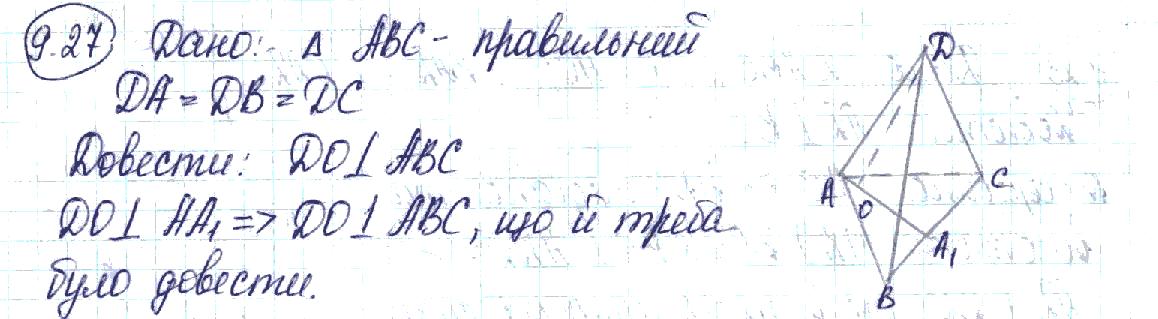 9.27 Дано: Δ ABC - правильний
DA = DB = DC
Довести: DO⊥ ABC
DO⊥ AA₁ => DO⊥ ABC, що й треба
було довести.
D
A
O
C
A₁
B